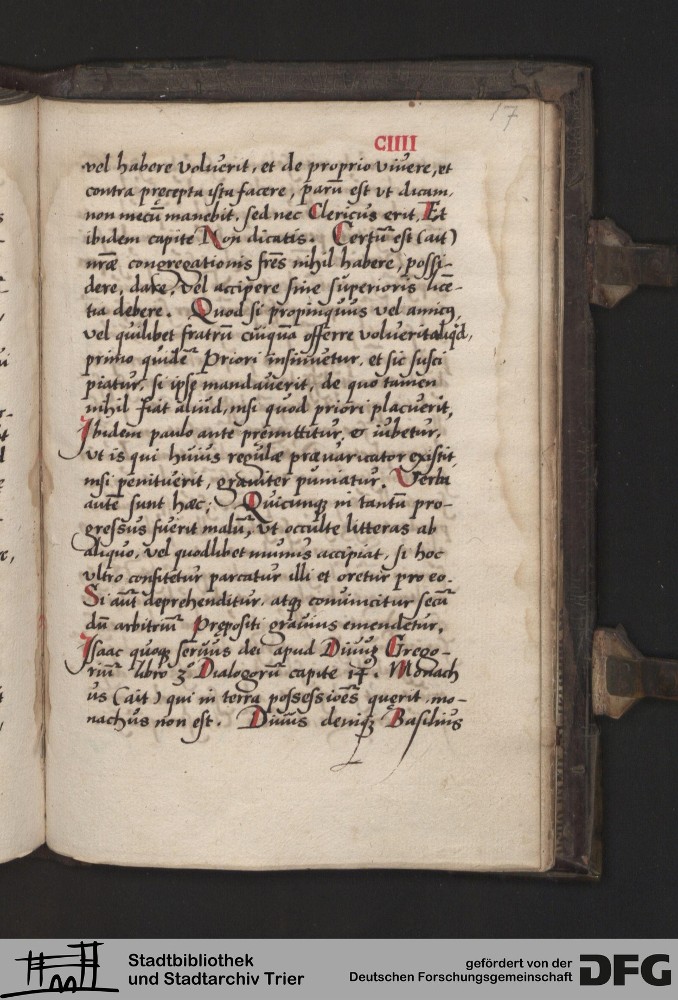 17
CIIII
vel habere voluerit, et de proprio viuere, et
contra pręcepta ista facere, parū est vt dicam,
non mecū manebit, sed nec Clericus erit, Et
ibidem capite Non dicatis. Certū est (ait)
nr̄æ congregationis fr̄es nihil habere, possi-
dere, dare, vel accipere sine superioris licē-
tia debere. Quod si propinquus vel amicꝰ,
vel quilibet fratrū cuiquā offerre voluerit aliqd,
primo quidē Priori insinuetur, et sic susci
piatur, si ipse mandauerit, de quo tamen
nihil fiat aliud, nisi quod priori placuerit,
Ibidem paulo ante premittitur, & iubetur,
vt is qui huius regulæ præuaricator existit,
nisi penituerit, grauiter puniatur. Verba
autē sunt hæc; Quicunqꝫ in tantū pro-
gressus fuerit malū, vt occulte litteras ab
aliquo, vel quodlibet munus accipiat, si hoc
vltro confitetur parcatur illi et oretur pro eo.
Si aūt deprehenditur, atqꝫ conuincitur secū
dū arbitriū Prępositi grauius emendetur,
Isaac quoqꝫ seruus dei apud Diuuꝫ Grego-
riū libro 3° Dialogorū capite 14. Monach
us (ait) qui in terra possessiōes quęrit mo-
nachus non est. Diuus deniqꝫ Basilius
Stadtbibliothek
und Stadtarchiv Trier
gefördert von der
Deutschen Forschungsgemeinschaft
DFG